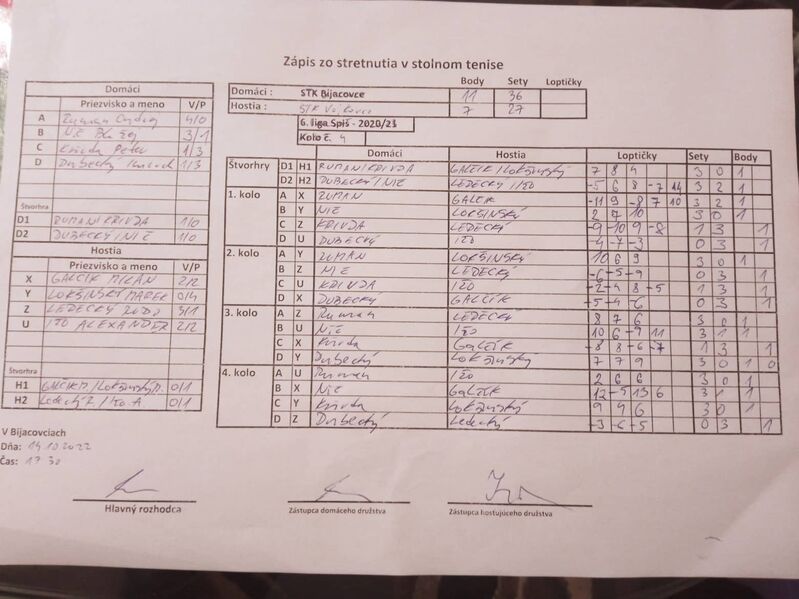 Zápis zo stretnutia v stolnom tenise
Body Sety Loptičky
Domáci : STK Bijacovce 11 36
Hostia : STK 7 27
6. liga Spiš - 2020/21
Kolo č. 4
Domáci
Priezvisko a meno V/P
A Ruman 4/0
B Nič 3/1
C Krivda Peter 1/3
D Dubecký 1/3
Štvorhra
D1 RUMAN/KRIVDA 1/0
D2 DUBECKÝ/NIČ 1/0
Hostia
Priezvisko a meno V/P
X GALČÍK MILAN 2/2
Y LOKŠINSKÝ MAREK 0/4
Z LEDECKÝ 3/1
U IŽO ALEXANDER 2/2
Štvorhra
H1 GALČÍK M./Lokšinský M. 0/1
H2 Ledecký R./Ižo A 0/1
Domáci Hostia Loptičky Sety Body
Štvorhry D1 H1 RUMAN/KRIVDA GALČÍK/LOKŠINSKÝ 7 8 4 3 0 1
D2 H2 DUBECKÝ/NIČ LEDECKÝ/IŽO -5 6 8 -7 14 3 2 1
1. kolo A X RUMAN GALČÍK -11 9 -8 7 10 3 2 1
B Y NIČ LOKŠINSKÝ 2 7 10 3 0 1
C Z KRIVDA LEDECKÝ -9 -10 9 -8 1 3 1
D U DUBECKÝ IŽO -4 -7 -3 0 3 1
2. kolo A Y RUMAN LOKŠINSKÝ 10 6 9 3 0 1
B Z NIČ LEDECKÝ -6 -5 -9 0 3 1
C U KRIVDA IŽO -2 -4 8 -5 1 3 1
D X DUBECKÝ GALČÍK -5 -4 -6 0 3 1
3. kolo A Z Ruman LEDECKÝ 8 7 6 3 0 1
B U Nič IŽO 10 6 -9 11 3 1 1
C X Krivda GALČÍK -8 8 -6 -7 1 3 1
D Y Dubecký Lokšinský 7 7 9 3 0 1 0
4. kolo A U Ruman IŽO 2 6 6 3 0 1
B X Nič Galčík 12 -5 13 6 3 1 1
C Y Krivda Lokšinský 9 4 6 3 0 1
D Z Dubecký Ledecký -3 -6 -5 0 3 1
V Bijacovciach
Dňa: 14.10.2022
Čas: 17 30
Hlavný rozhodca Zástupca domáceho družstva Zástupca hostujúceho družstva